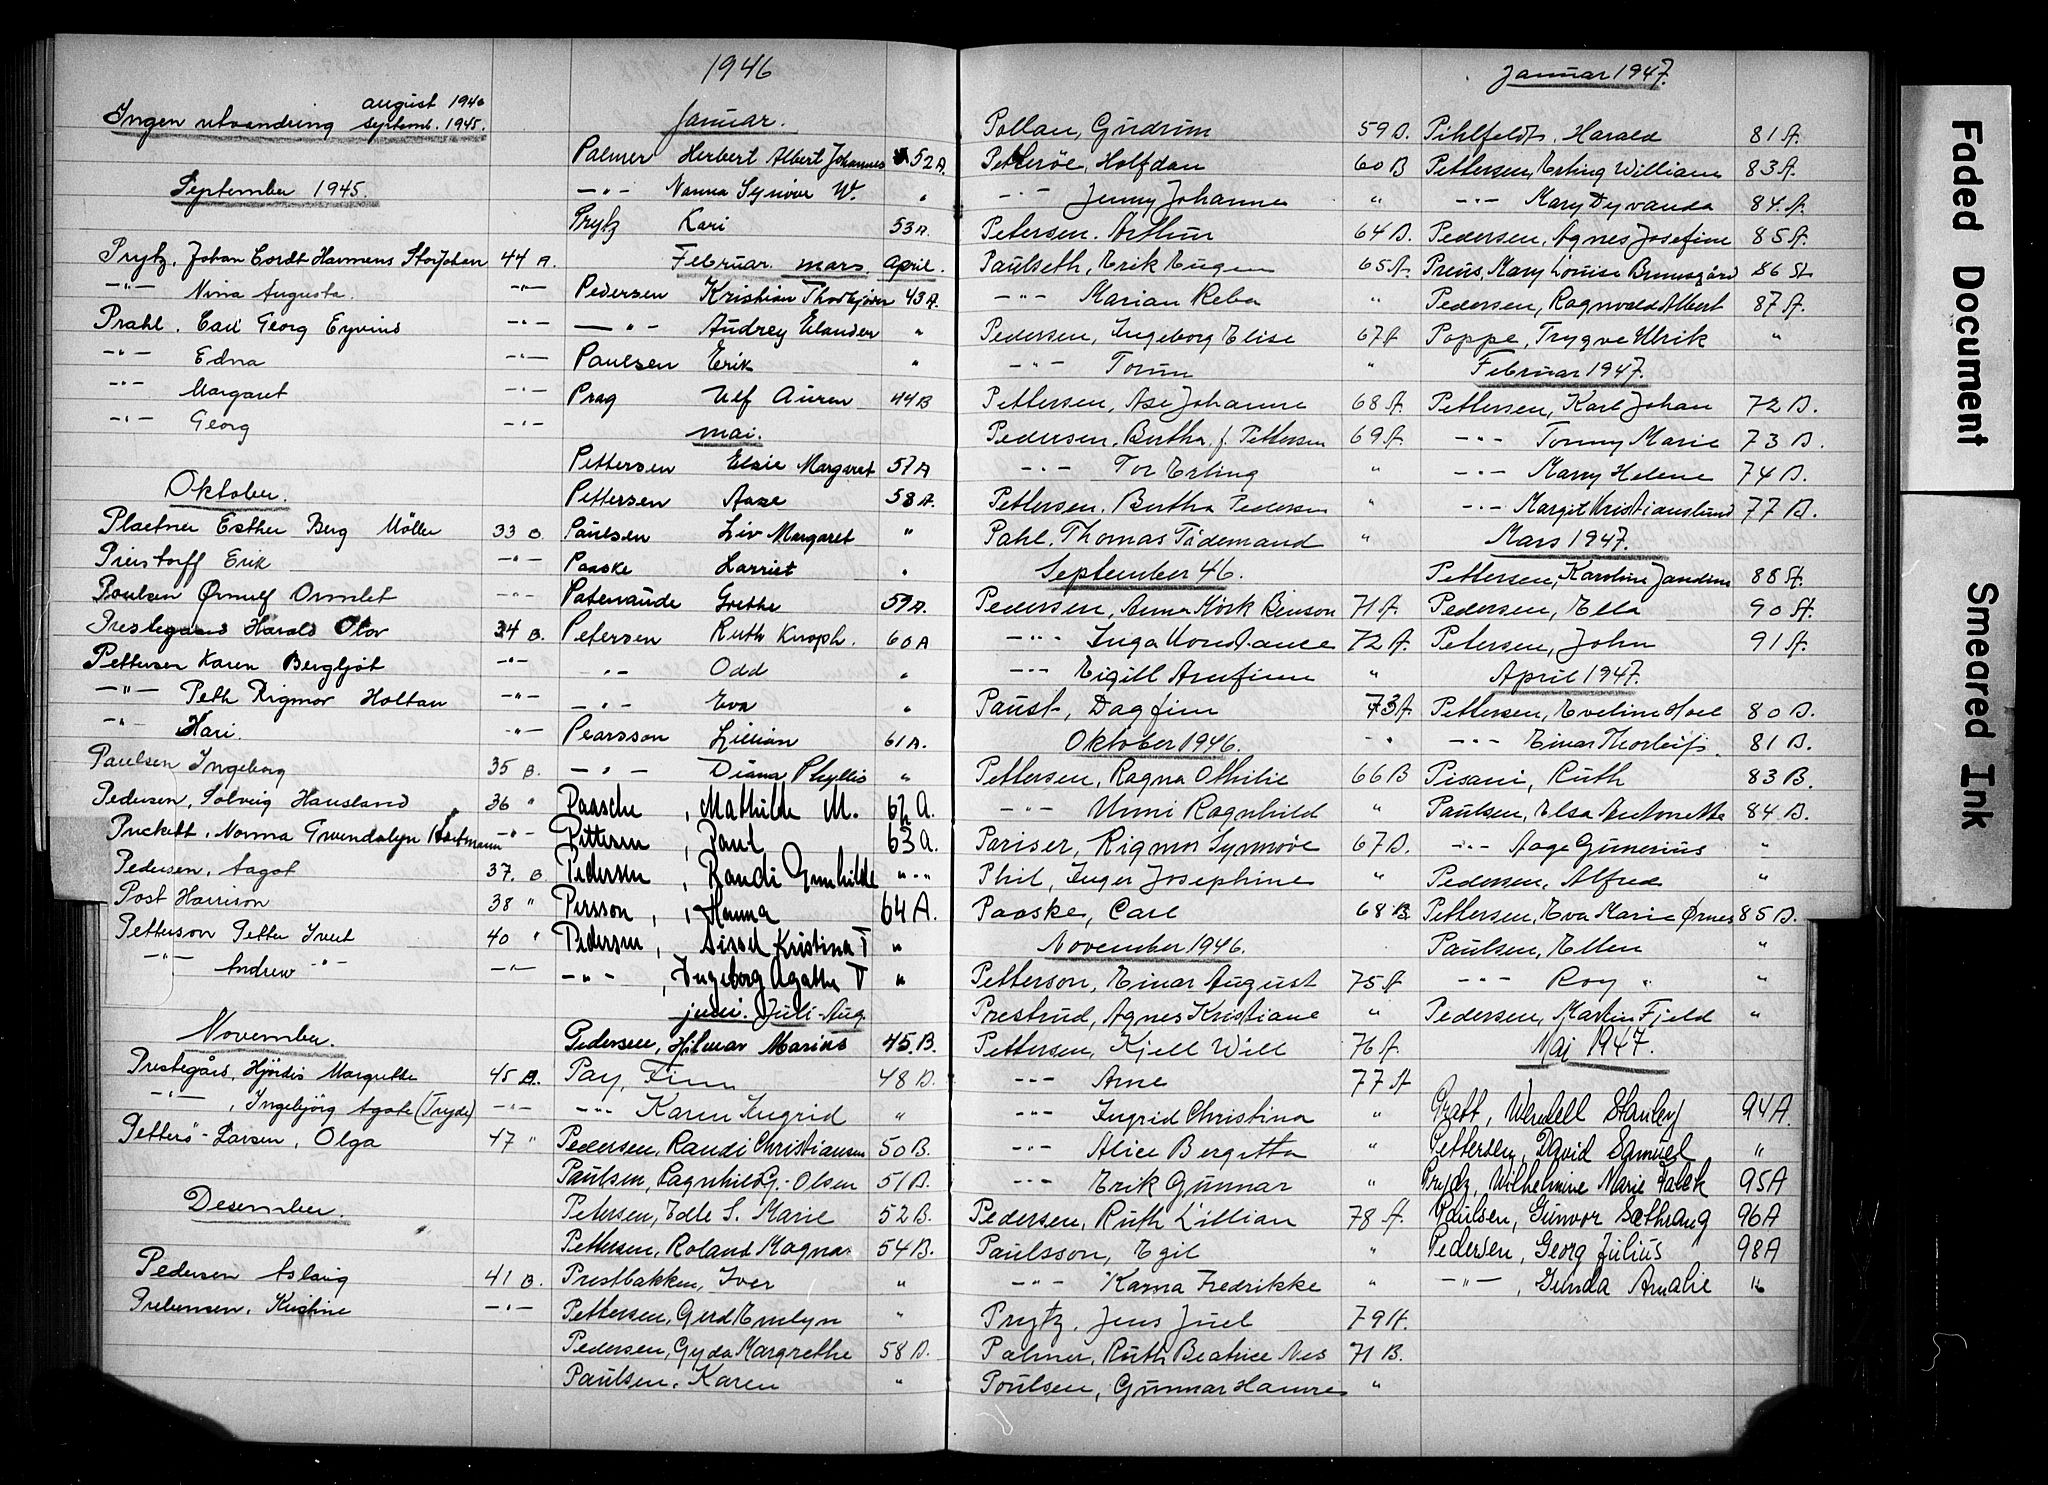 august 1940
Ingen utvandring septemb. 1945.
September 1945.
Prytz, Johan Cordt Harmens Storjohan 44 A.
-"- Nina Augusta. -"-
Prahl, Carl Georg Eyvind -"-
-"- Edna -"-
-"- Margaret -"-
-"- Georg -"-
Oktober.
Plaetner Esther Berg Möller 33 B.
Preistorff Erik -"-
Poulsen Ørnulf Ormlet -"-
Prestegaard Harald Olov 34 B.
Pettersen Karen Bergljot -"-
-"- Peth Rigmor Holtan -"-
-"- Kari. -"-
Paulsen Ingeborg 35 B.
Pedersen, Solveig Hausland 36 "
Puckett, Norma Gwendolyn Hartmann -"-
Pedersen, Aagot 37. B
Post Harrison 38 "
Petterson Petter Ivert 40 "
-"- Andrew -"- -"-
November.
Prestegård, Hjördis Margrethe 45 A.
-"-, Ingebjörg Agate (Tryde) -"-
Petterö-Larsen, Olga 47 "
Desember.
Pedersen Aslaug 41 B.
Prebensen, Kristine -"-
1946
Januar.
Palmer Herbert Albert Johannes 52 A.
-"- Nanna Synöve W. "
Prytz Kari 53 A.
Februar. mars. April.
Pedersen Kristian Thorbjörn 43 A.
-"- Audrey Elander "
Paulsen Erik "
Prag Ulf Auren 44 B
mai.
Pettersen Elsie Margaret 57 A
Pettersen Aase 58 A.
Paulsen Liv Margaret "
Paaske Harriet "
Patenaude Grethe 59 A.
Petersen Ruth Knoph. 60 A
-"- Odd "
-"- Eva "
Pearsson Lillian 61 A.
-"- Diana Phyllis "
Paasche, Mathilde M. 62 A.
Pettersen, Paul 63 A.
Pedersen, Randi Gunhilde "-"
Persson, Hanna 64 A.
Pedersen, Sissel Kristina T "
-"-, Ingeborg Agathe T "
juni. Juli-Aug.
Pedersen, Hilmar Marius 45. B.
Pay, Finn 48 B.
-"- Karen Ingrid "
Pedersen, Randi Christiansen 50 B.
Paulsen, Ragnhild G.-Olsen 51 B.
Petersen, Edle S. Marie 52 B.
Pettersen, Roland Magnar 54 B.
Prestbakken, Iver "
Pettersen, Gerd Emelyn "
Pedersen, Gyda Margrethe 58 B.
Paulsen, Karen "
Pollan, Gudrun 59 B.
Petterøe, Halfdan 60 B
-"- Jenny Johanne "
Petersen. Arthur 64 B.
Paulseth, Erik Eugen 65 A.
-"- Marian Reba "
Pedersen, Ingeborg Elise 67 A
-"- Torun "
Pettersen, Ase Johanne 68 A.
Pedersen, Bertha f. Pettersen 69 A.
-"- Tor Erling "
Pettersen, Bertha Pedersen "
Pahl, Thomas Tidemand "
September 46.
Pedersen, Anna Mörk Benson 71 A.
-"- Inga Konstance 72 A.
-"- Eigill Arnfinn "
Paust, Dagfinn 73 A.
Oktober 1946.
Pettersen, Ragna Othilie 66 B
-"- Unni Ragnhild "
Pariser, Rigmor Synnøve 67 B.
Phil, Inger Josephine "
Paaske, Carl 68 B.
November 1946.
Petterson, Einar August 75 A
Prestrud, Agnes Kristiane "
Pettersen, Kjell Will 76 A.
-"- Arne 77 A
-"- Ingrid Christina "
-"- Alice Bergitta "
-"- Erik Gunnar "
Pedersen, Ruth Lillian 78 A.
Paulsson, Egil "
-"- Karna Fredrikke "
Prytz, Jens Juel 79 A.
Palmer, Ruth Beatrice Nes 71 B.
Poulsen, Gunnar Hamre "
Januar 1947.
Pihlfeldt, Harald 81 A.
Pettersen, Erling William 83 A.
-"- Mary Dyvanda 84. A.
Pedersen, Agnes Josefine 85 A.
Preus, Mary Louise Brunsgård 86 A
Pedersen, Ragnvald Albert 87 A.
Poppe, Trygve Ulrik "
Februar 1947.
Pettersen, Karl Johan 72 B.
-"- Tonny Marie 73 B.
-"- Marry Helene 74 B.
-"- Margit Kristianslund 77 B.
Mars 1947.
Pettersen, Karoline Jandine 88 A.
Pedersen, Ella 90 A.
Petersen, John 91 A.
April 1947.
Pettersen, Eveline Hoel 80 B.
-"- Einar Thorleif. 81 B.
Pisani, Ruth 83 B.
Paulsen, Elsa Antonette 84 B.
-"- Aage Gunerius "
Pedersen, Alfred "
Pettersen, Eva Marie Ørnes 85 B.
Paulsen, Ellen "
-"- Roy "
Pedersen, Martin Fjeld "
Mai 1947.
Pratt, Wendell Stanley 94 A.
Petterson, David Samuel "
Prydz, Wilhelmine Marie Falck 95 A
Paulsen, Gunvor Sæthrang 96 A
Pedersen, Georg Julius 98 A
-"-, Gunda Amalie "
Faded Document
Smeared Ink